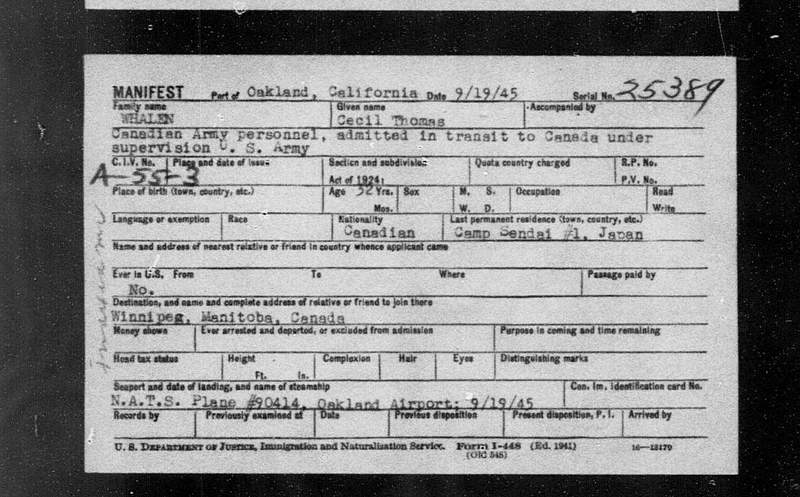 MANIFEST Port of Oakland, California Date 9/19/45 Serial No. 25389
Family name Given name Accompanied by
WHALEN Cecil Thomas
Canadian Army personnel, admitted in transit to Canada under
supervision U. S. Army
C.I.V. No. Place and date of issue Section and subdivision Quota country charged R.P. No.
A-55-3 Act of 1924: P.V. No.
Place of birth (town, country, etc.) Age 32 Yrs. Sex M. S. Occupation Read
Mos. W. D. Write
Language or exemption Race Nationality Last permanent residence (town, country, etc.)
Canadian Camp Sendai #1, Japan
Name and address of nearest relative or friend in country whence applicant came
Ever in U.S. From To Where Passage paid by
No.
Destination, and name and complete address of relative or friend to join there
Winnipeg, Manitoba, Canada
Money shown Ever arrested and deported, or excluded from admission Purpose in coming and time remaining
Head tax status Height Complexion Hair Eyes Distinguishing marks
Ft. In.
Seaport and date of landing, and name of steamship Con. Im. Identification card No.
N.A.T.S. Plane #90414, Oakland Airport; 9/19/45
Records by Previously examined at Date Previous disposition Present disposition, P. I. Arrived by
U. S. DEPARTMENT OF JUSTICE, Immigration and Naturalization Service. Form I-448 (Ed. 1941) 16-13179
(Old 548)